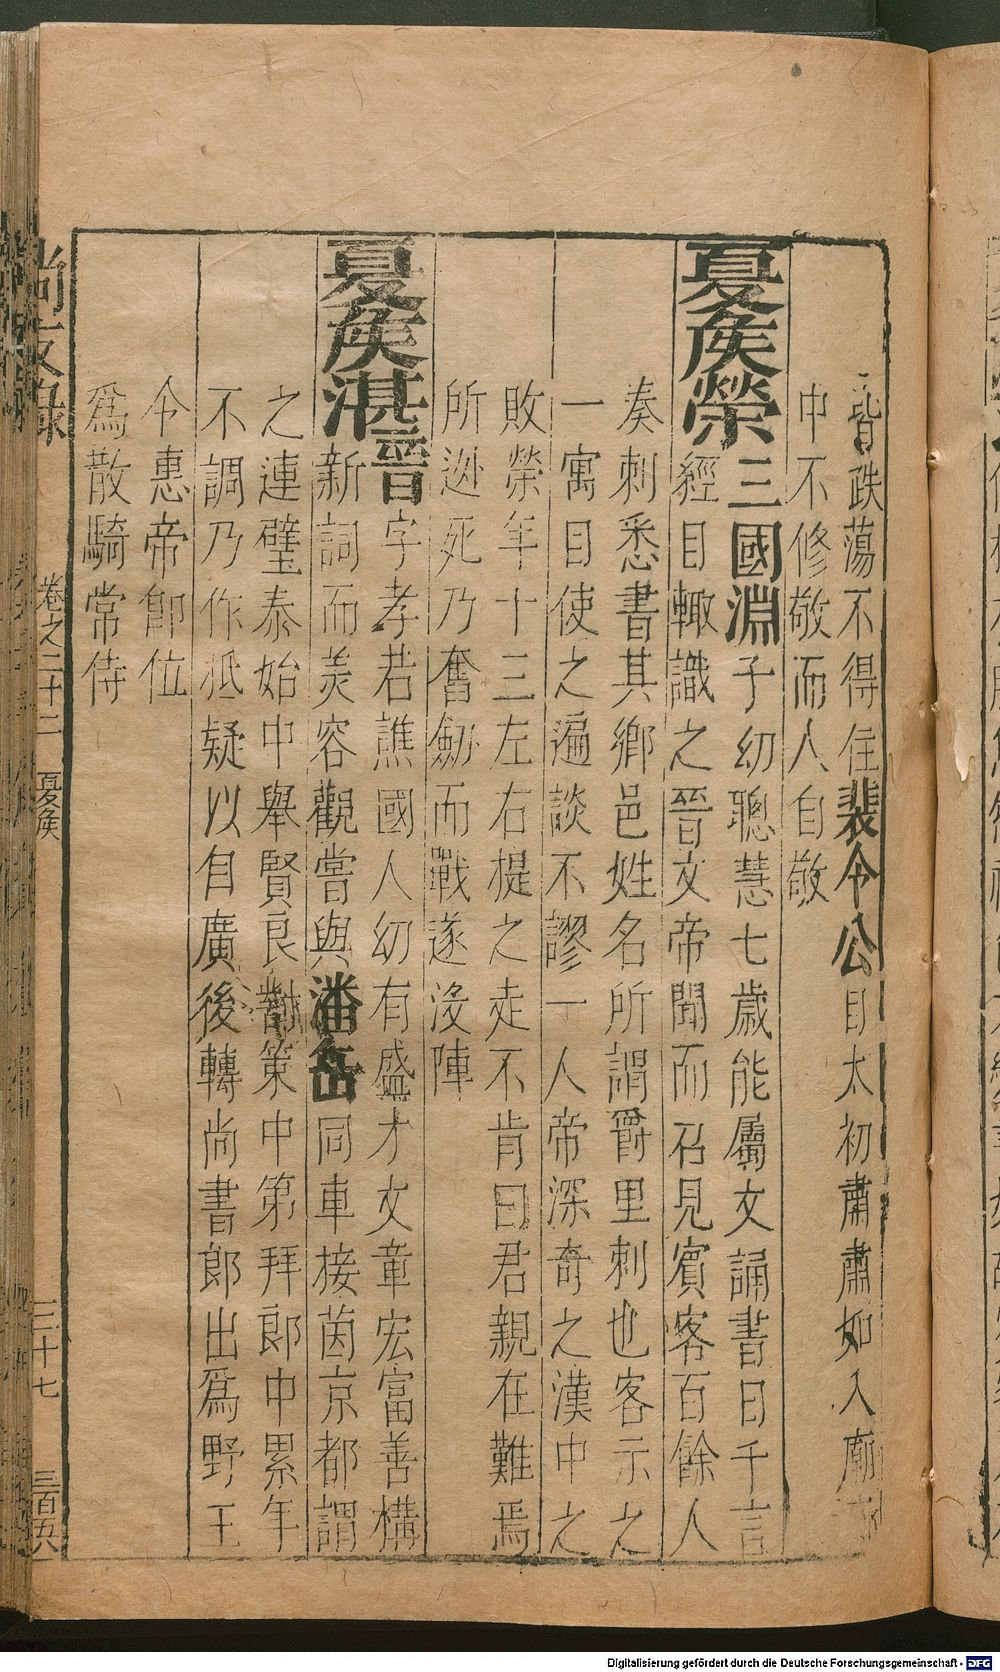 皆跌蕩不得住裴令公目太初肅肅如入廟
中不修敬而人自敬
夏侯榮三國淵子幼聰慧七歲能屬文誦書日千言
經目輙識之晉文帝聞而召見賓客百餘人
奏刺悉書其鄉邑姓名所謂爵里刺也客示之
一寓目使之遍談不謬一人帝深奇之漢中之
敗榮年十三左右提之走不肯曰君親在難焉
所逃死乃奮劒而戰遂沒陣
夏侯湛晉字孝若譙國人幼有盛才文章宏富善構
新詞而美容觀嘗與潘岳同車接茵京都謂
之連璧泰始中舉賢良對策中第拜郎中累年
不調乃作抵疑以自廣後轉尚書郎出爲野王
令惠帝卽位
爲散騎常侍
尚友錄 卷之二十二 夏侯 三十七 三百五六
Digitalisierung gefördert durch die Deutsche Forschungsgemeinschaft - DFG